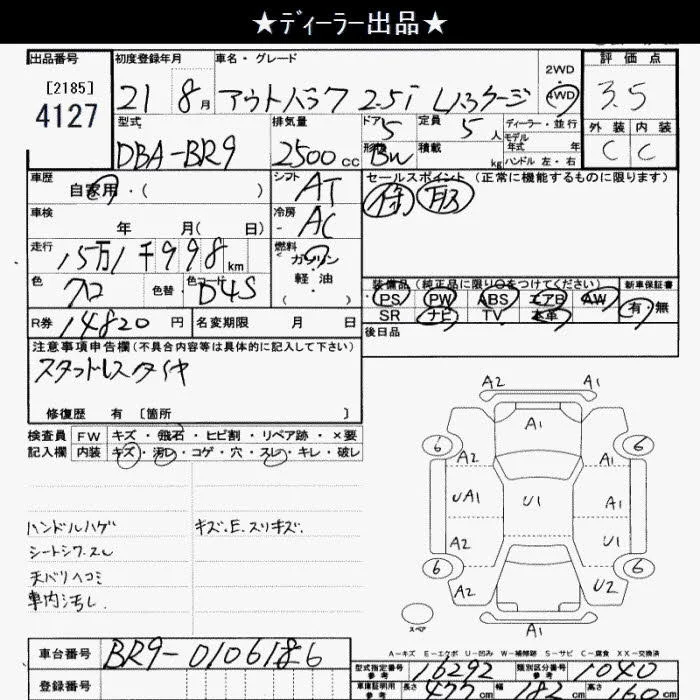 ★ディーラー出品★
出品番号 初度登録年月 車名・グレード 評価点
[2185]
4127
21 8月 アウトバック 2.5i Lパッケージ
2WD
4WD
3.5
型式 排気量 ドア 定員 ディーラー・並行
外装 内装
DBA-BR9 2500cc 5 5人
モデル年式 年
形状 BW 積載 kg ハンドル 左・右
C C
車歴 自家用・( )
シフト AT
セールスポイント (正常に機能するものに限ります)
車検 年 月( 日)
冷房 AC
走行 15万1千998km
燃料 ガソリン
軽油
・( )
色 クロ 色替 色コード D4S
装備品 (純正品に限り〇をつけてください) 新車保証書
PS PW ABS エアB AW 有・無
SR ナビ TV 本革
R券 14820円 名変期限 月 日
後日品
注意事項申告欄(不具合内容等は具体的に記入して下さい)
スタットレスタイヤ
修復歴 有 [箇所 ]
検査員 FW キズ・飛石・ヒビ割・リペア跡・×要
記入欄 内装 キズ・汚レ・コゲ・穴・スレ・キレ・破レ
ハンドルハゲ キズ.E.スリキズ.
シートシワ.スレ
天バリヘコミ
車内汚レ.
A2 A1
A1
6 6
A2 A1
UA1 U1 A1
A2 U1
6 6
A2 U2
スペア
A1
A-キズ E-エクボ U-凹み W-補修跡 S-サビ C-腐食 XX-交換済
車台番号 BR9-0106186
型式指定番号 参考 16292 類別区分番号 参考 1040
登録番号
車庫証明用 参考 長さ 477cm 幅 182cm 高さ 160cm